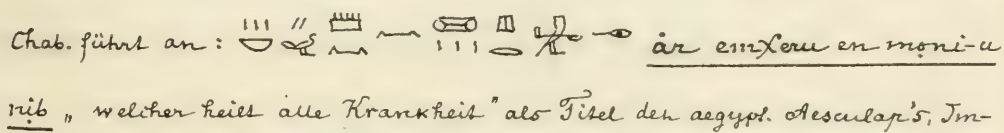 Chab. führt an: år emχeru en moni-u
nib „welcher heilt alle Krankheit" als Titel den aegypt. Aesculap's, Im-